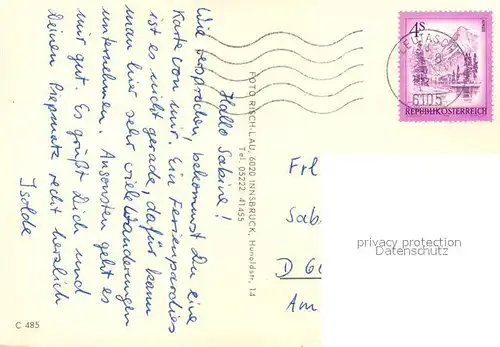 Hallo Sabine!
Wie versprochen, bekommst Du eine
Karte von mir. Ein Ferienparadies
ist es nicht gerade, dafür kann
man hier sehr viele Wanderungen
unternehmen. Ansonsten geht es
mir gut. Es grüßt Dich und
Deinen recht herzlich
Isolde
C 485
FOTO RISCH-LAU, 6020 INNSBRUCK, Hunoldstr. 14
Tel. 05222 41455
4 S
REPUBLIK ÖSTERREICH
LEUTASCH
6105
Frl
Sab
D 6
Am
privacy protection
Datenschutz AnsichtskartenVersand